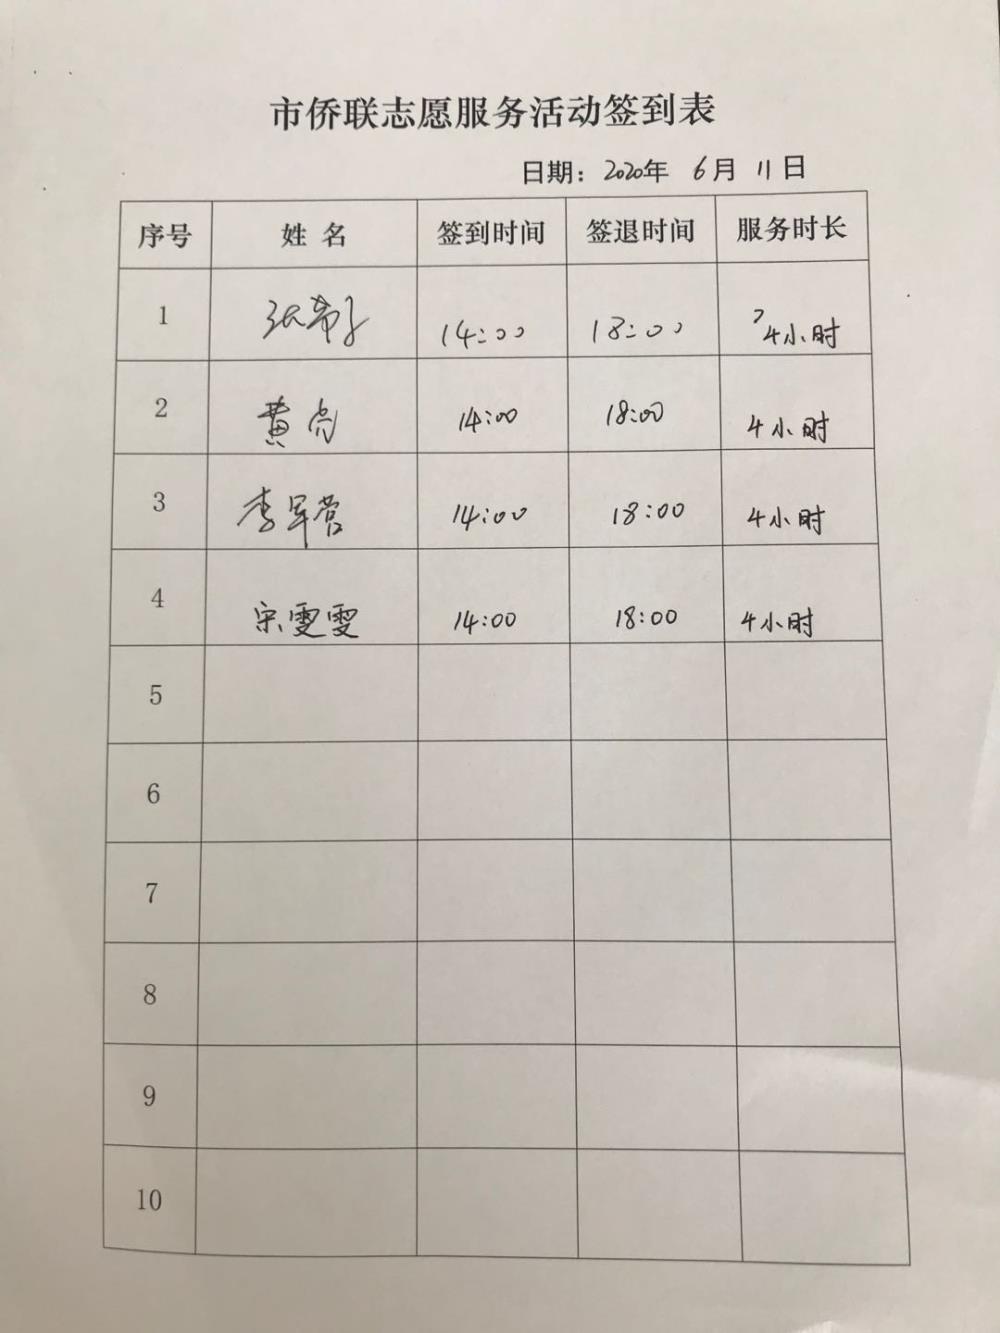 市侨联志愿服务活动签到表
日期：2020年 6月 11日
序号 姓名 签到时间 签退时间 服务时长
1 14:00 18:00 4小时
2 黄亮 14:00 18:00 4小时
3 李军营 14:00 18:00 4小时
4 宋雯雯 14:00 18:00 4小时
5
6
7
8
9
10